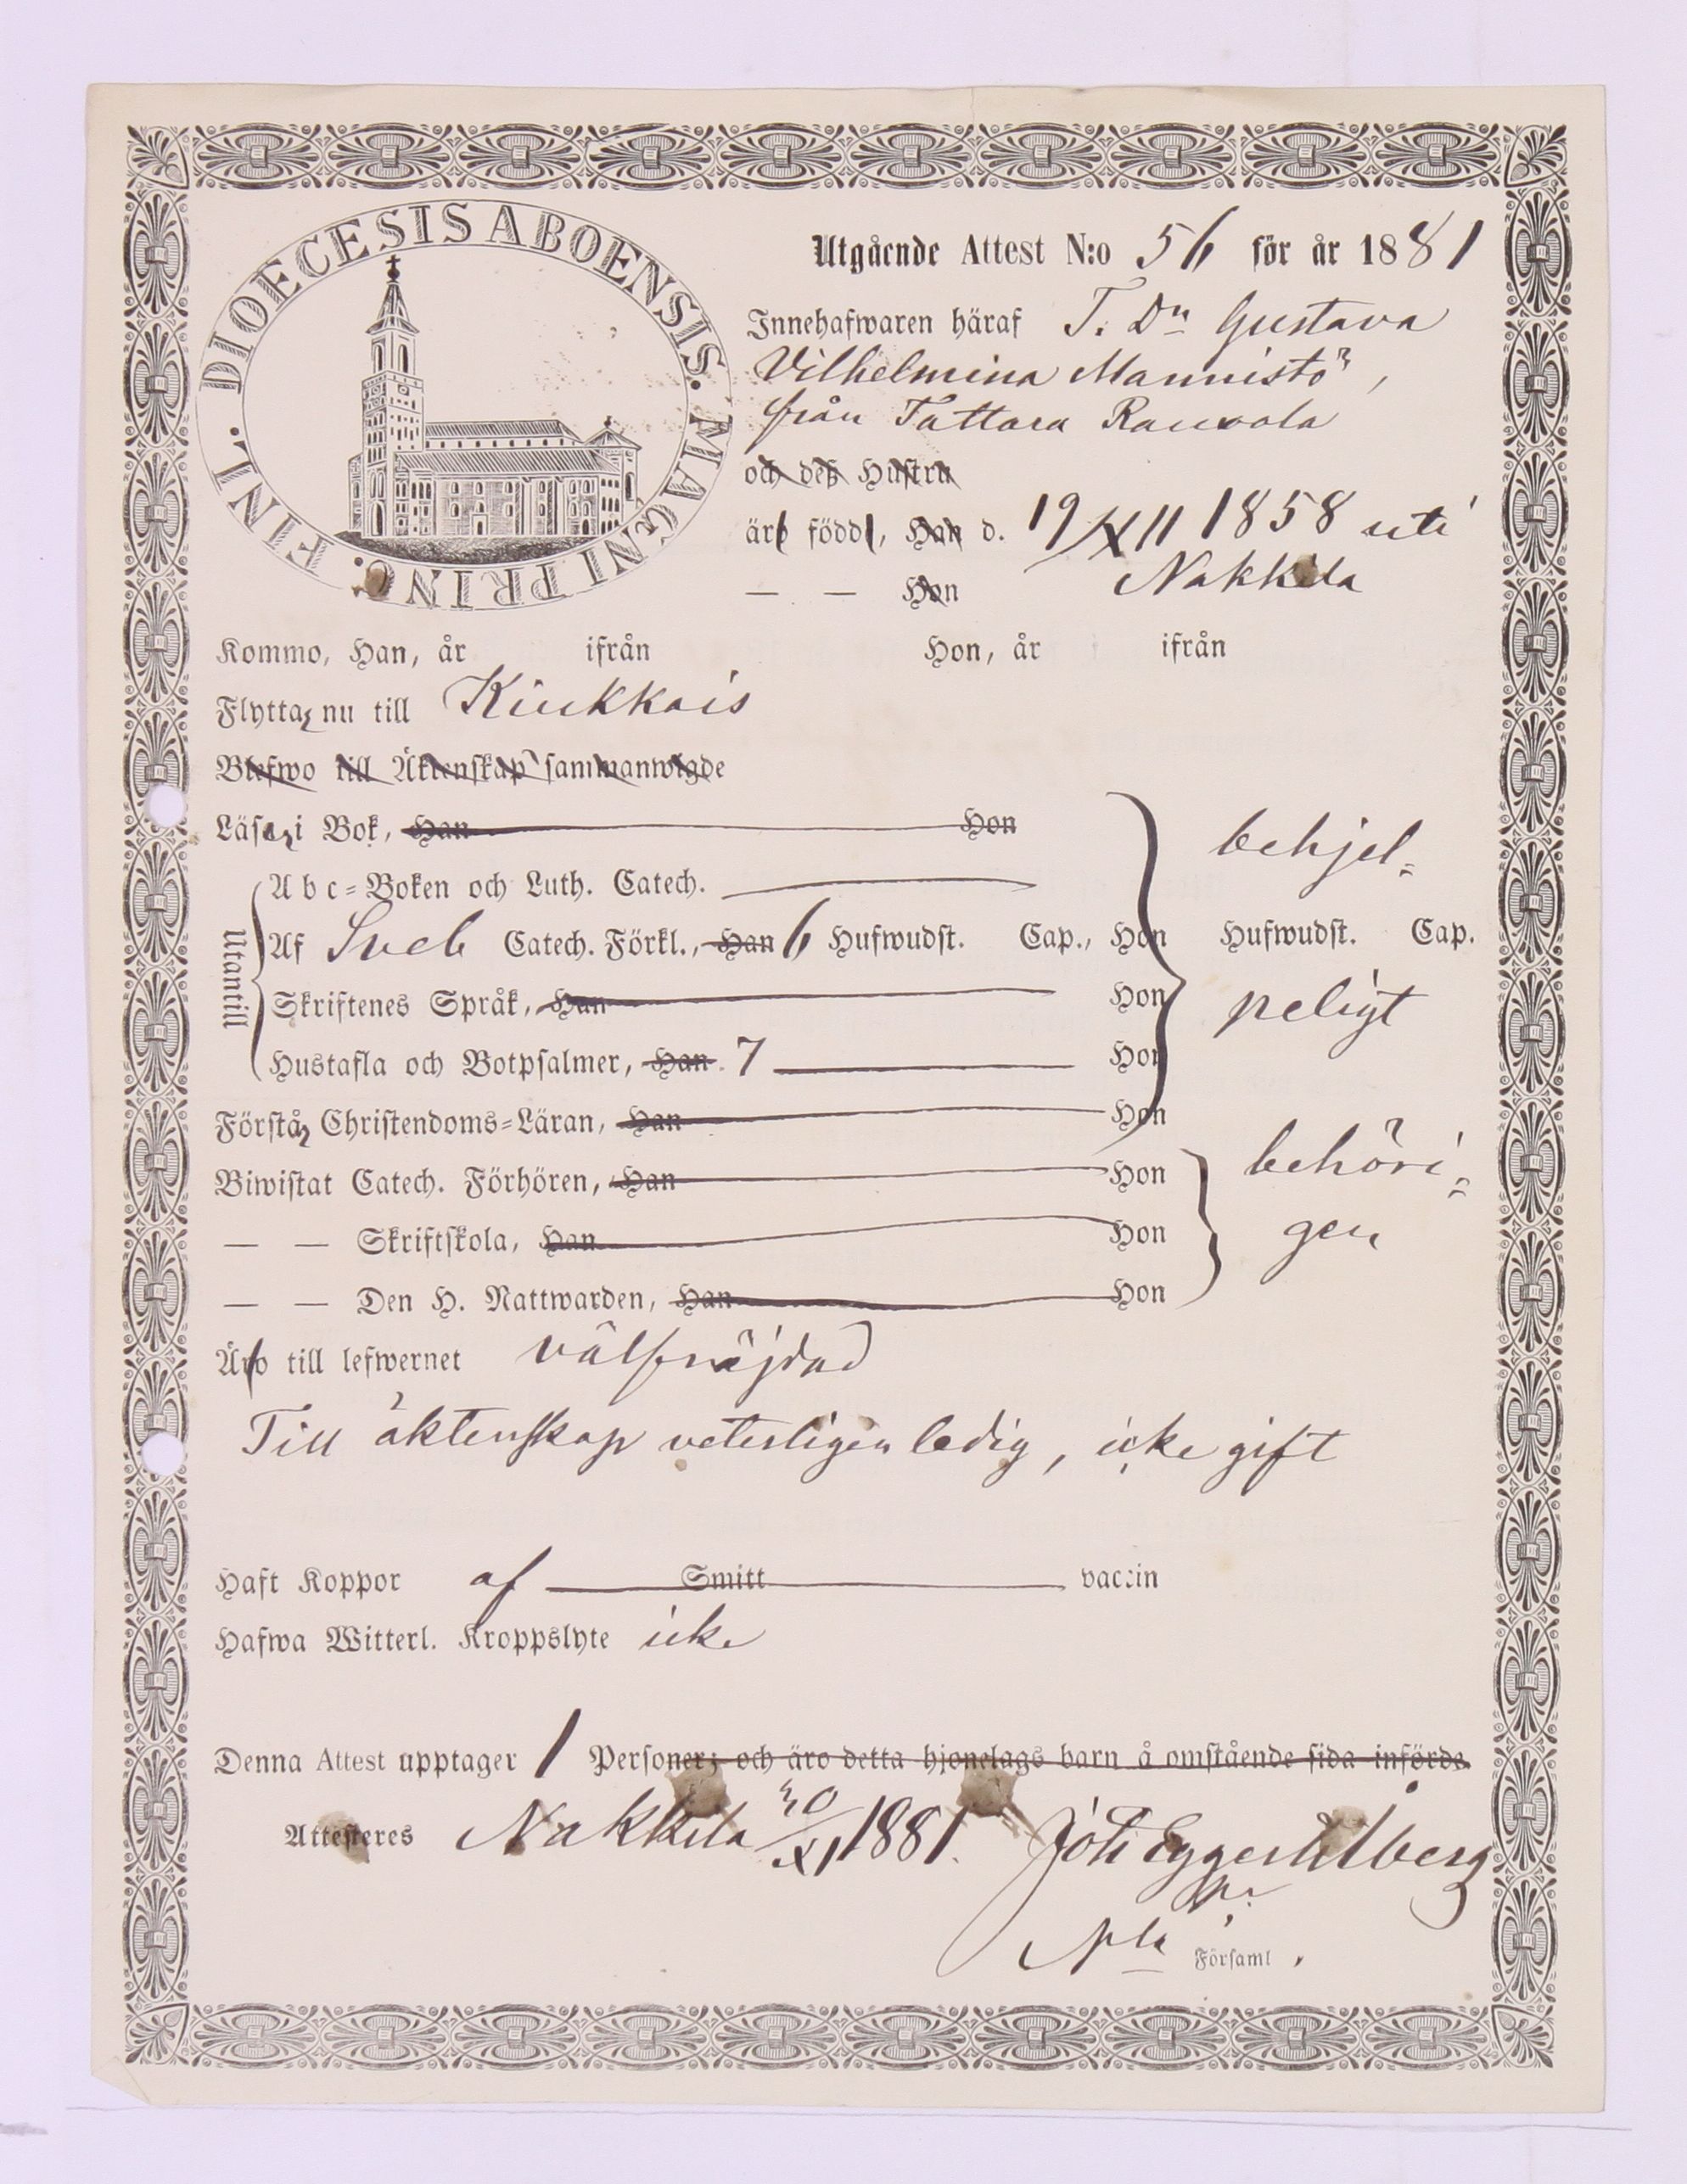 DIOECESIS ABOENSIS. MAGNI PRINC. FINL.
Utgående Attest N:o 56 för år 1881
Innehafwaren häraf T. Dn Gustava
Vilhelmina Mannistö,
från Tattara Rauvola
och deß Hustru
äro född, Han d. 19/XII 1858 uti
— — Hon Nakkila
Kommo, Han, år ifrån Hon, år ifrån
Flyttar nu till Kiukkais
Blefwo till Äktenskap sammanwigde
Läser i Bok, Han Hon behjel-
Utantill
A b c-Boken och Luth. Catech.
Af Sveb Catech. Förkl., Han 6 Hufwudst. Cap., Hon Hufwudst. Cap.
Skriftenes Språk, Han Hon peligt
Hustafla och Botpsalmer, Han 7 Hon
Förstår Christendoms-Läran, Han Hon
Biwistat Catech. Förhören, Han Hon behöri-
— — Skriftskola, Han Hon gen
— — Den H. Nattwarden, Han Hon
Äro till lefwernet välfräjdad
Till äktenskap veterligen ledig, icke gift
Haft Koppor af Smitt vaccin
Hafwa Witterl. Kroppslyte icke
Denna Attest upptager 1 Personer; och äro detta hjonelags barn å omstående sida införde.
Attesteres Nakkila 30/XI 1881. Joh
Församl.